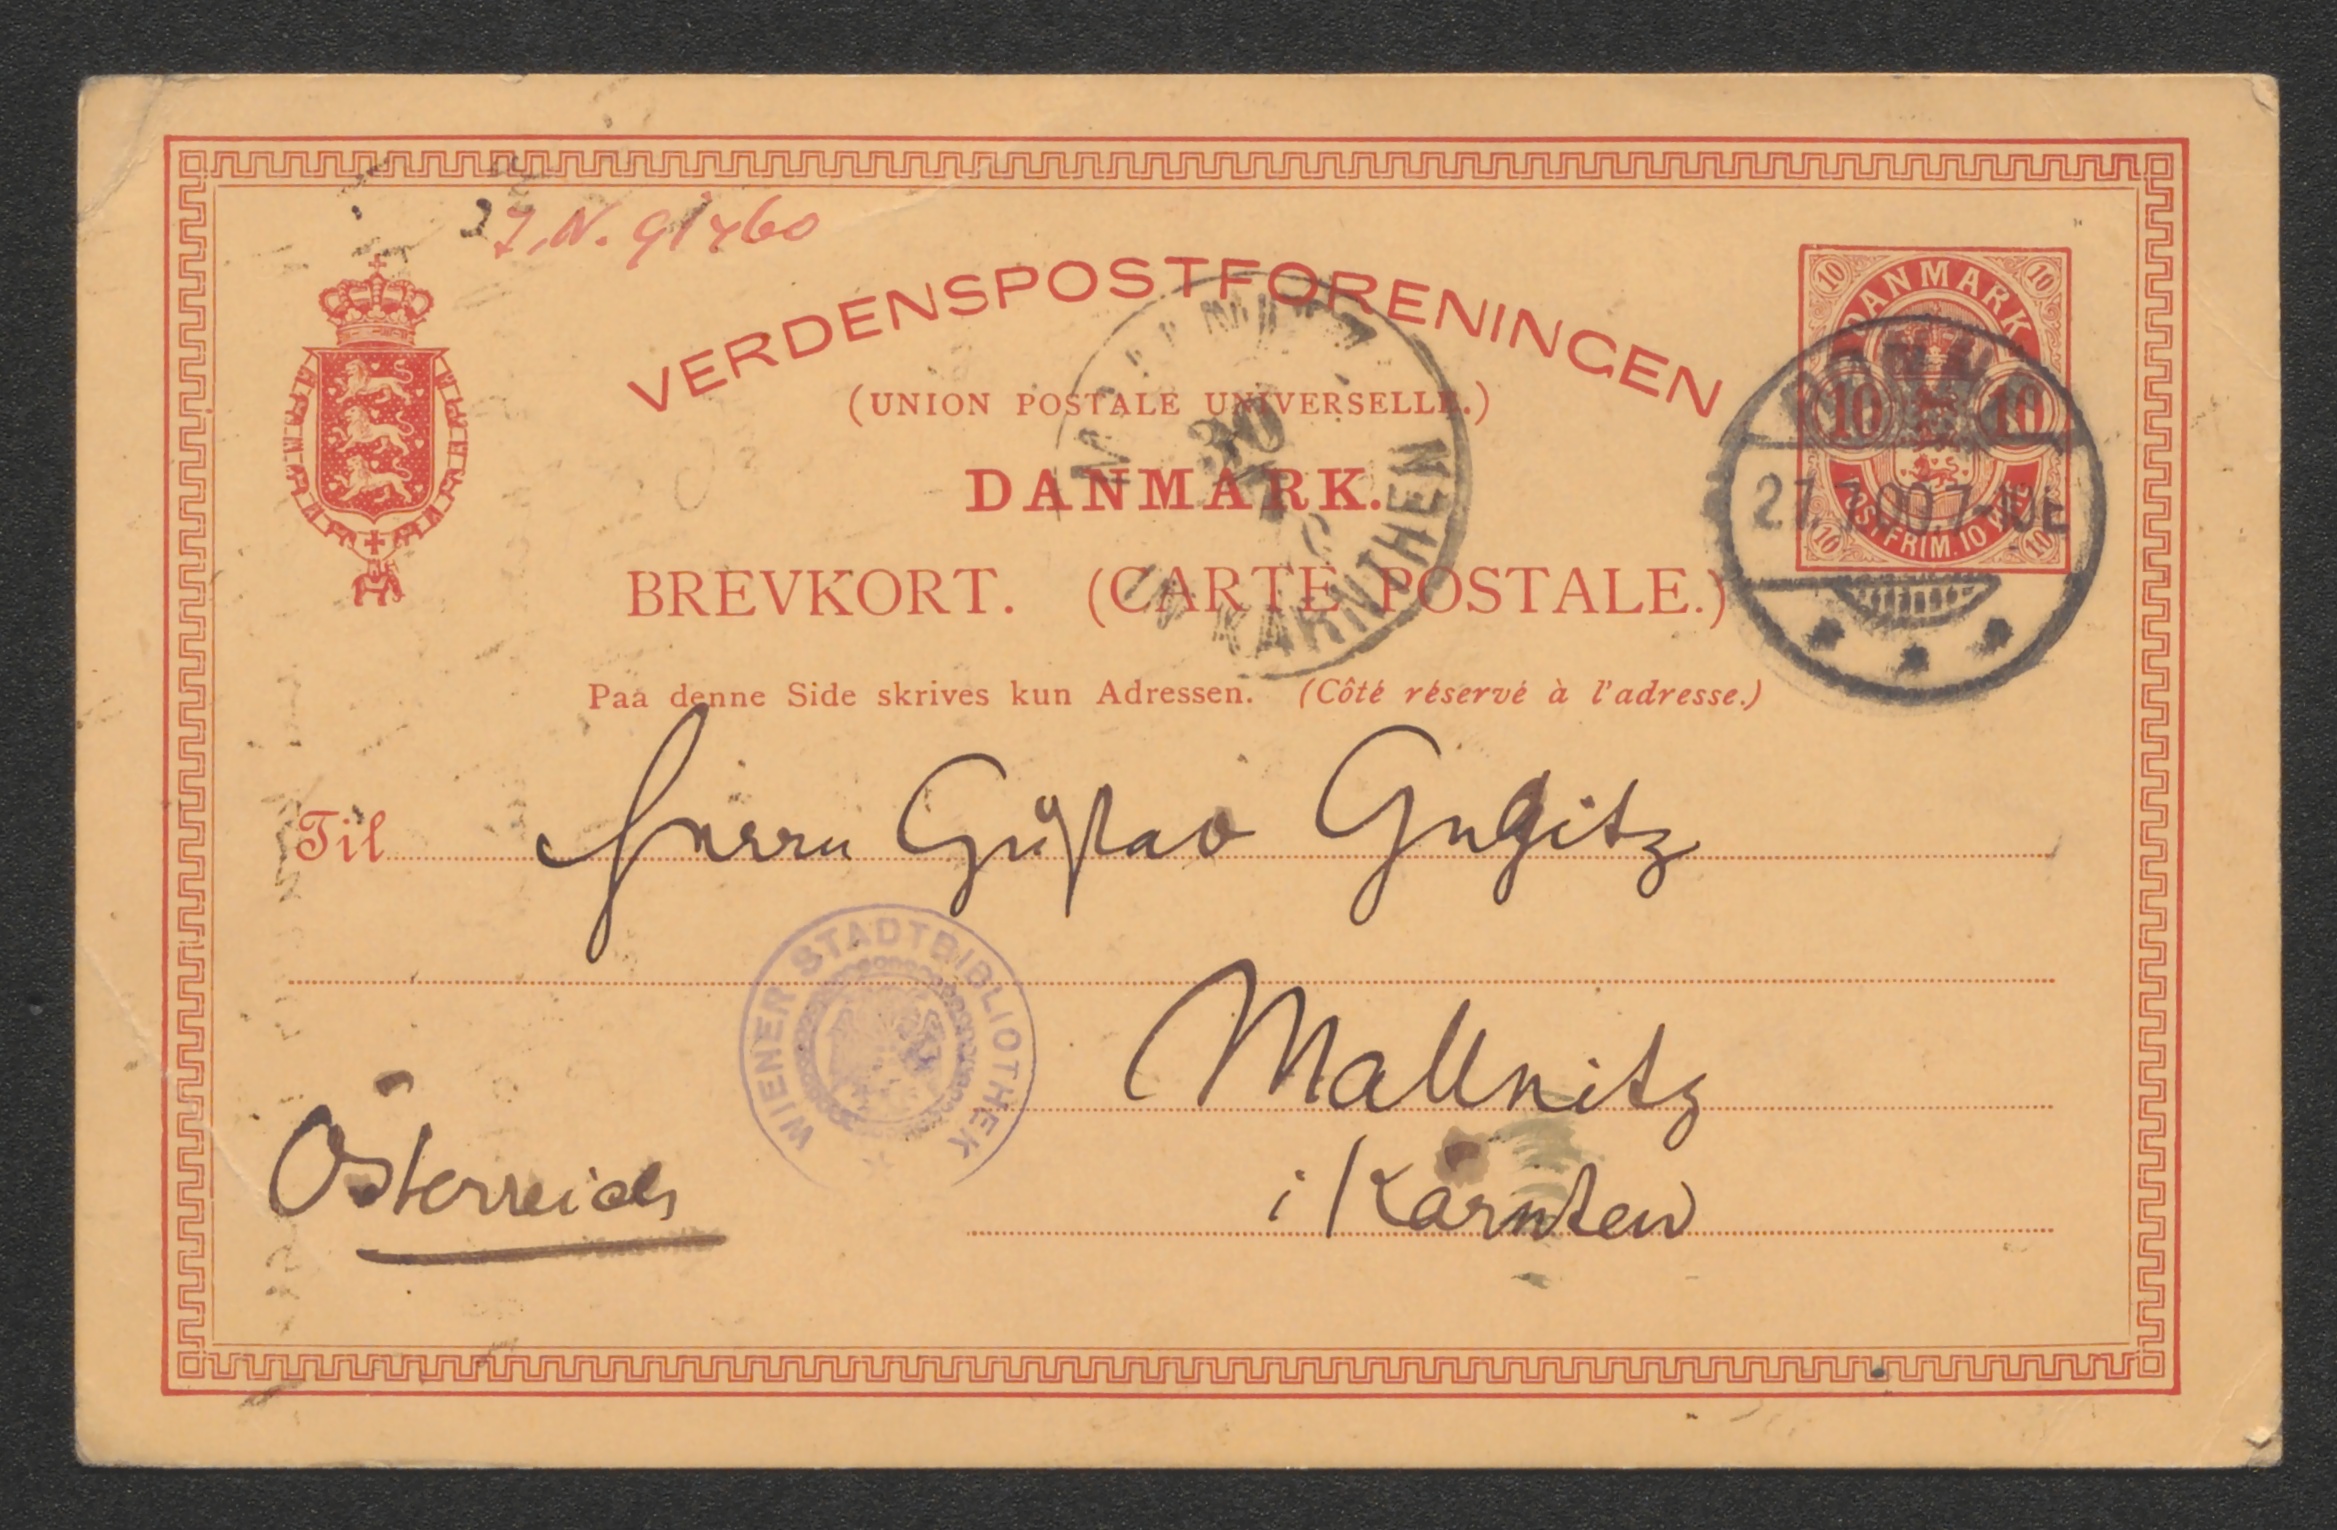 J.N. 91760
VERDENSPOSTFORENINGEN
(UNION POSTALE UNIVERSELLE.)
DANMARK.
BREVKORT. (CARTE POSTALE.)
Paa denne Side skrives kun Adressen. (Côté réservé à l'adresse.)
DANMARK
10 10
10 10
POST FRIM. 10 WEG
10 10
27.7.00.7-10E
30
7
IN KÄRNTHEN
Til Herrn Gustav Gugitz
WIENER STADTBIBLIOTHEK
Mallnitz
Österreich
i Kärnten